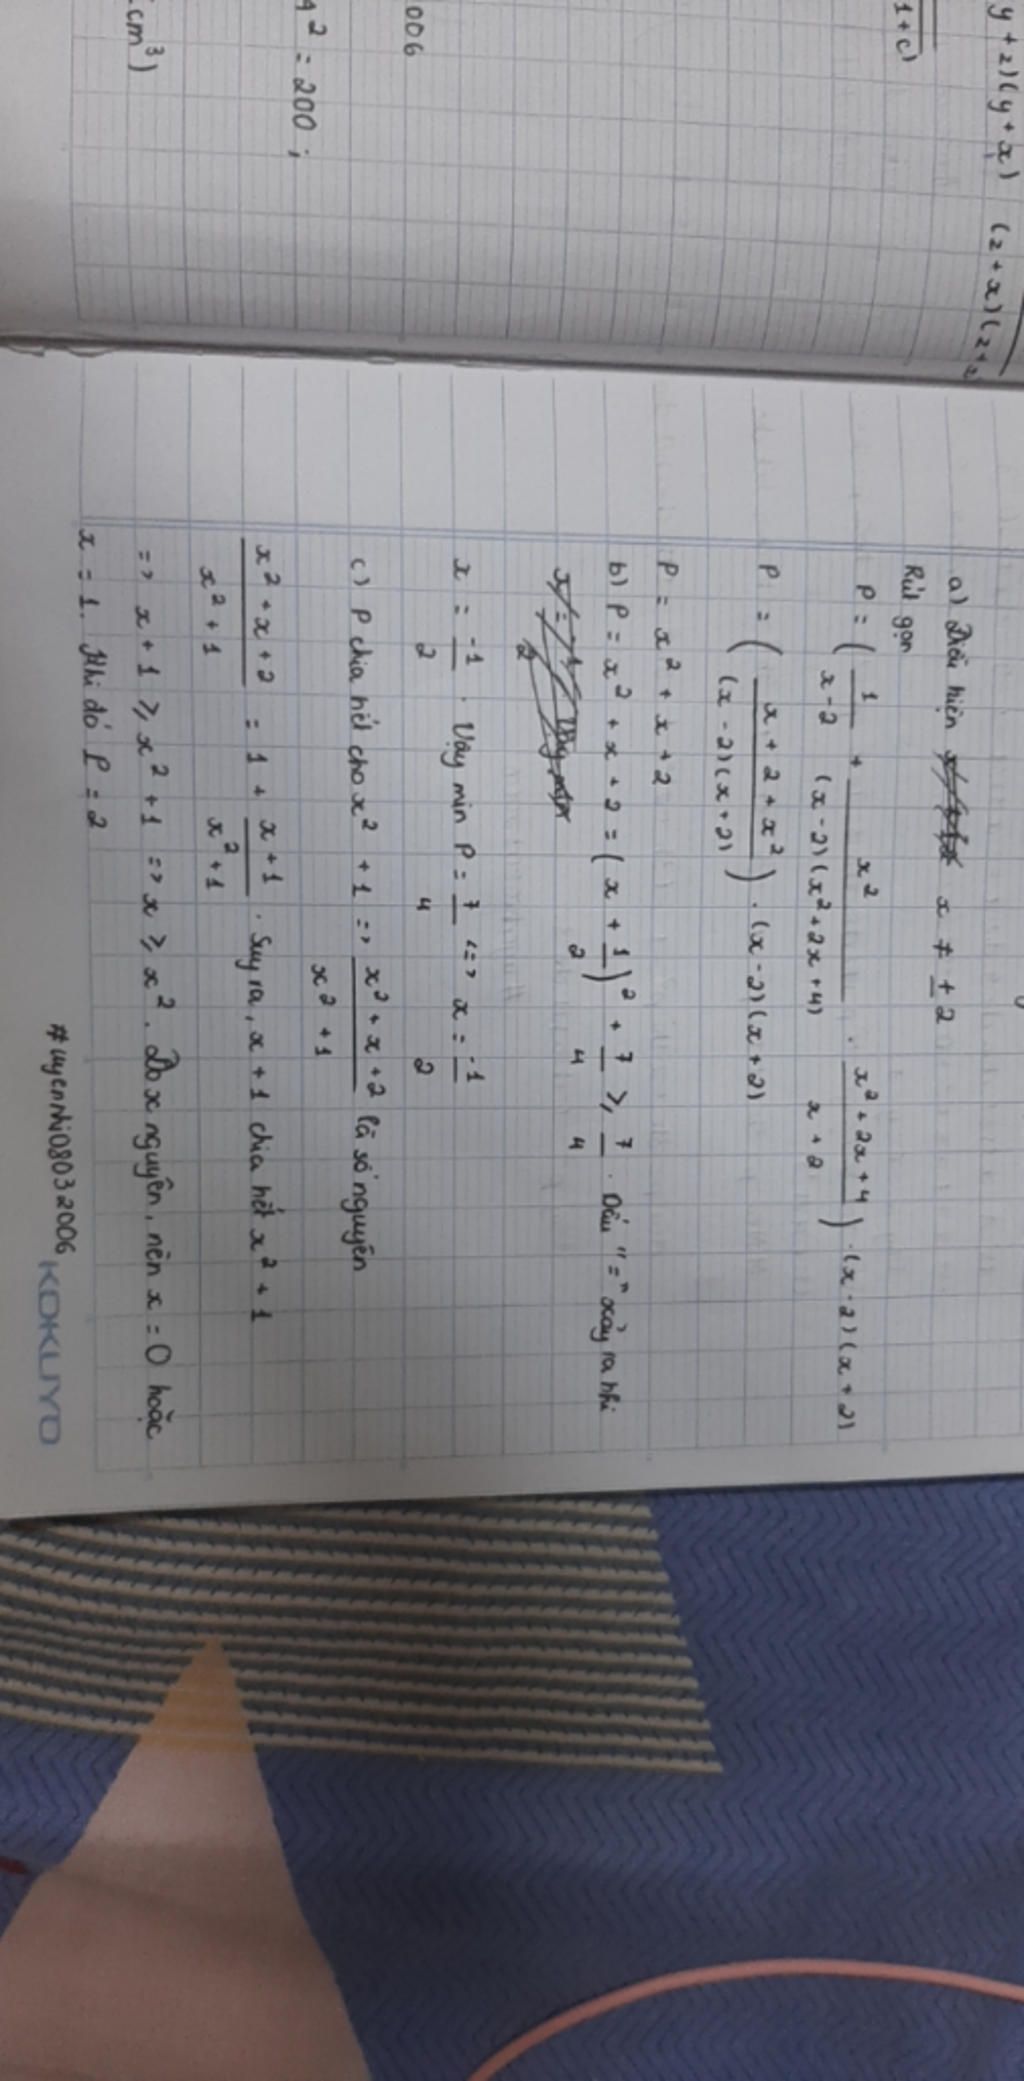 y + z)(y + x) (z + x)(z +
1 + c)
006
2 = 200 ;
cm³)
a) Điều kiện x ≠ ± 2
Rút gọn
P = ( 1/(x - 2) + x²/((x - 2)(x² + 2x + 4)) . (x² + 2x + 4)/(x + 2) ) . (x - 2)(x + 2)
P = ( (x + 2 + x²)/((x - 2)(x + 2)) ) . (x - 2)(x + 2)
P = x² + x + 2
b) P = x² + x + 2 = ( x + 1/2 )² + 7/4 ≥ 7/4 . Dấu "=" xảy ra khi
x = -1/2 . Vậy min P = 7/4 <=> x = -1/2
c) P chia hết cho x² + 1 => (x² + x + 2)/(x² + 1) là số nguyên
(x² + x + 2)/(x² + 1) = 1 + (x + 1)/(x² + 1) . Suy ra, x + 1 chia hết x² + 1
=> x + 1 ≥ x² + 1 => x ≥ x² . Do x nguyên, nên x = 0 hoặc
x = 1. Khi đó P = 2
#uyennhi08032006
KOKUYO